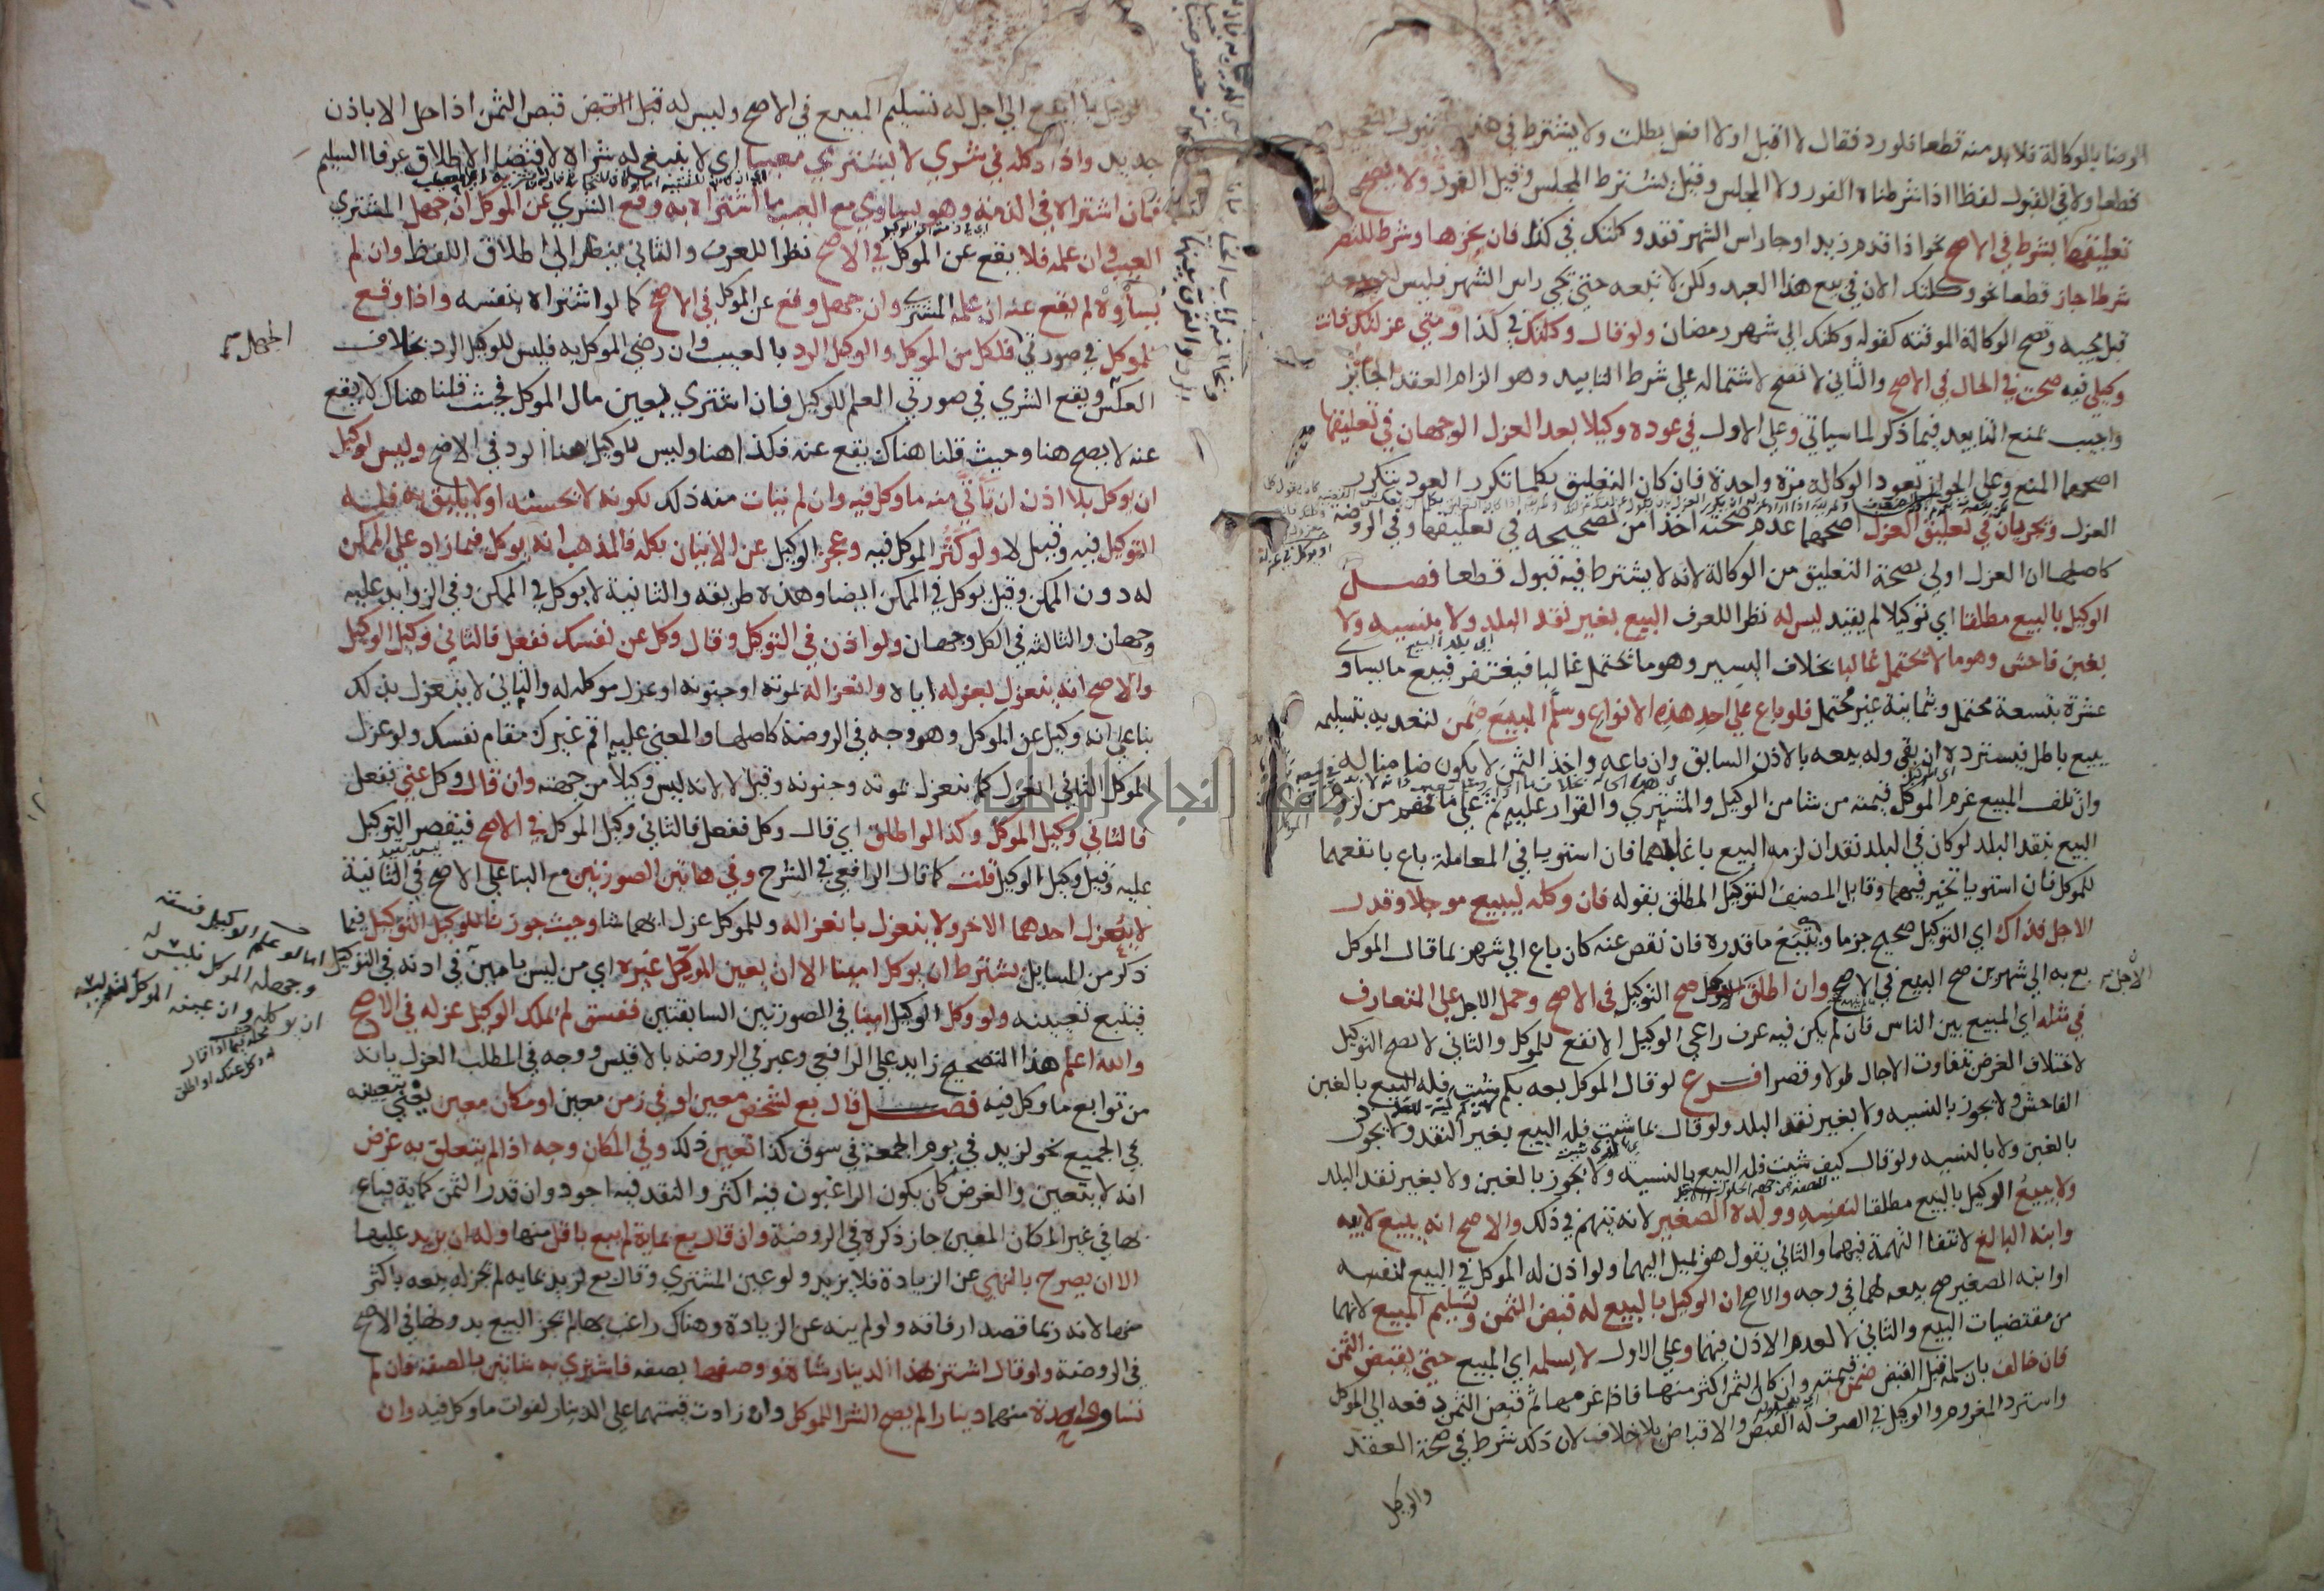 الرضا بالوكالة فلابد منه قطعا فلو رد فقال لا اقبل او لا افعل بطلت ولا يشترط في هذا القبول التعجيل
قطعا ولا في القبول لفظا اذا شرطناه الفور ولا المجلس وقيل يشترط المجلس وقيل الفور ولا يصح
تعليقها بشرط في الاصح نحو اذا قدم زيد او جا راس الشهر فقد وكلتك في كذا فان نجزها وشرط للتصرف
شرطا جاز قطعا نحو وكلتك الان في بيع هذا العبد ولكن لا تبعه حتى يجي راس الشهر فليس له بيعه
قبل مجيه وتصح الوكالة الموقتة كقوله وكلتك الي شهر رمضان ولو قال وكلتك في كذا ومتي عزلتك فانت
وكيلي فيه صحت في الحال في الاصح والثاني لا تصح لاشتماله علي شرط التابيد وهو الزام العقد الجائز
واجيب بمنع التابيد فيما ذكر لما سياتي وعلي الاول في عوده وكيلا بعد العزل الوجهان في تعليقها
اصحهما المنع وعلي الجواز تعود الوكالة مرة واحدة فان كان التعليق بكلما تكرر العود بتكرر
العزل ويجريان في تعليق العزل اصحهما عدم صحته اخذا من تصحيحه في تعليقها وفي الروضة
كاصلها ان العزل اولي بصحة التعليق من الوكالة لانه لا يشترط فيه قبول قطعا فصل
الوكيل بالبيع مطلقا اي توكيلا لم يقيد ليس له نظرا للعرف البيع بغير نقد البلد ولا بنسيه ولا
بغبن فاحش وهو ما لا يحتمل غالبا بخلاف اليسير وهو ما يحتمل غالبا فيغتفر فبيع ما يساوي
عشرة بتسعة محتمل وبثمانية غير محتمل فلو باع علي احد هذه الانواع وسلم المبيع ضمن لتعديه بتسليمه
ببيع باطل فيسترده ان بقي وله بيعه بالاذن السابق وان باعه واخذ الثمن لا يكون ضامنا له
وان تلف المبيع غرم الموكل قيمته من شا من الوكيل والمشتري والقرار عليه ثم علي ما فهم من لزوم
البيع بنقد البلد لو كان في البلد نقدان لزمه البيع باغلبهما فان استويا في المعاملة باع بانفعهما
للموكل فان استويا تخير فيهما وقابل المصنف التوكيل المطلق بقوله فان وكله ليبيع موجلا وقدر
الاجل فذاك اي التوكيل صحيح جزما ويتبع ما قدره فان نقص عنه كان باع الي شهر بما قال الموكل
بع به الي شهرين صح البيع في الاصح وان اطلق الاجل صح التوكيل في الاصح وحمل الاجل علي المتعارف
في مثله اي المبيع بين الناس فان لم يكن فيه عرف راعي الوكيل الانفع للموكل والثاني لا يصح التوكيل
لاختلاف الغرض بتفاوت الاجال طولا وقصرا فرع لو قال الموكل بعه بكم شيت فله البيع بالغبن
الفاحش ولا يجوز بالنسيه ولا بغير نقد البلد ولو قال بما شيت فله البيع بغير النقد ولا يجوز
بالغبن ولا بالنسيه ولو قال كيف شيت فله البيع بالنسية ولا يجوز بالغبن ولا بغير نقد البلد
ولا يبيع الوكيل بالبيع مطلقا لنفسه وولده الصغير لانه يتهم في ذلك والاصح انه يبيع لابيه
وابنه البالغ لانتفا التهمة فيهما والثاني يقول هو يميل اليهما ولو اذن له الموكل في البيع لنفسه
او ابنه الصغير صح بيعه لهما في وجه والاصح ان الوكيل بالبيع له قبض الثمن وتسليم المبيع لانهما
من مقتضيات البيع والثاني لا لعدم الاذن فيهما وعلي الاول لا يسلمه اي المبيع حتي يقبض الثمن
فان خالف بان سلمه قبل القبض ضمن قيمته وان كان الثمن اكثر منها فاذا غرمها ثم قبض الثمن دفعه الي الموكل
واسترد المغروم والوكيل في الصرف له القبض والاقباض بلا خلاف لان ذلك شرط في صحة العقد
والوكيل
الوكيل بالبيع الي اجل له تسليم المبيع في الاصح وليس له قبض الثمن اذا حل الا باذن
جديد واذا وكله في شري لا يشتري معيبا اي لا ينبغي له شراه لاقتضا الاطلاق عرفا السليم
فان اشتراه في الذمة وهو يساوي مع العيب ما اشتراه به وقع الشري عن الموكل ان جهل المشتري
العيب وان علمه فلا يقع عن الموكل في الاصح نظرا للعرف والثاني ينظر الي اطلاق اللفظ وان لم
يساوه لم يقع عنه ان علمه المشتري وان جهل وقع عن الموكل في الاصح كما لو اشتراه بنفسه واذا وقع
للموكل في صورتي فلكل من الموكل والوكيل الرد بالعيب وان رضي الموكل به فليس للوكيل الرد بخلاف
الجهل
العكس ويقع الشري في صورتي العلم للوكيل فان اشتري بعين مال الموكل فحيث قلنا هناك لا يقع
عنه لا يصح هنا وحيث قلنا هناك يقع عنه فكذا هنا وليس للوكيل هنا الرد في الاصح وليس لوكيل
ان يوكل بلا اذن ان تأتي منه ما وكل فيه وان لم يتات منه ذلك لكونه لا يحسنه او لا يليق به فله
التوكيل فيه وقيل لا ولو كثر الموكل فيه وعجز الوكيل عن الاتيان بكله فالمذهب انه يوكل فيما زاد علي الممكن
له دون الممكن وقيل يوكل في الممكن ايضا وهذه طريقه والثانية لا يوكل في الممكن وفي الزوايد عليه
وجهان والثالثه في الكل وجهان ولو اذن في التوكيل وقال وكل عن نفسك ففعل فالثاني وكيل الوكيل
والاصح انه ينعزل بعزله اياه وانعزاله بموته او جنونه او عزل موكله له والثاني لا ينعزل بذلك
بنا علي انه وكيل عن الموكل وهو وجه في الروضة كاصلها والمعني عليه اقم غيرك مقام نفسك ولو عزل
الموكل الثاني انعزل كما ينعزل بموته وجنونه وقيل لا لانه ليس وكيلا من جهته وان قال وكل عني ففعل
فالثاني وكيل الموكل وكذا لو اطلق اي قال وكل ففعل فالثاني وكيل الموكل في الاصح فيقصر التوكيل
عليه وقيل وكيل الوكيل قلت كما قال الرافعي في الشرح وفي هاتين الصورتين مع البنا علي الاصح في الثانية
لا يعزل احدهما الاخر ولا ينعزل بانعزاله وللموكل عزل ايهما شا وحيث جوزنا للوكيل التوكيل فيما
ذكر من المسايل يشترط ان يوكل امينا الا ان يعين الموكل غيره اي من ليس بامين في اذنه في التوكيل
اما لو علم الوكيل فسقه
وجهله الموكل فليس له
ان يوكله وان عينه الموكل
فيتبع تعيينه ولو وكل الوكيل امينا في الصورتين السابقتين ففسق لم يملك الوكيل عزله في الاصح
والله اعلم هذا التصحيح زايد علي الرافعي وعبر في الروضة بالاقيس ووجه في المطلب العزل بانه
من توابع ما وكل فيه فصل قال بع لشخص معين او في زمن معين او مكان معين يعني بتعيينه
في الجميع نحو لزيد في يوم الجمعة في سوق كذا تعين ذلك وفي المكان وجه اذا لم يتعلق به غرض
انه لا يتعين والغرض كأن يكون الراغبون فيه اكثر والنقد فيه اجود وان قدر الثمن كماية فباع
بها في غير المكان المعين جاز ذكره في الروضة وان قال بع بماية لم يبع باقل منها وله ان يزيد عليها
الا ان يصرح بالنهي عن الزيادة فلا يزيد ولو عين المشتري وقال بع لزيد بمايه لم يجز له بيعه باكثر
منها لانه ربما قصد ارفاقه ولو لم ينه عن الزيادة وهناك راغب بها لم يجز البيع بدونها في الاصح
في الروضة ولو قال اشتر بهذا الدينار شاة ووصفها بصفه فاشتري به شاتين بالصفة فان لم
تساو واحدة منهما دينارا لم يصح الشرا للموكل وان زادت قيمتهما علي الدينار لفوات ما وكل فيه وان